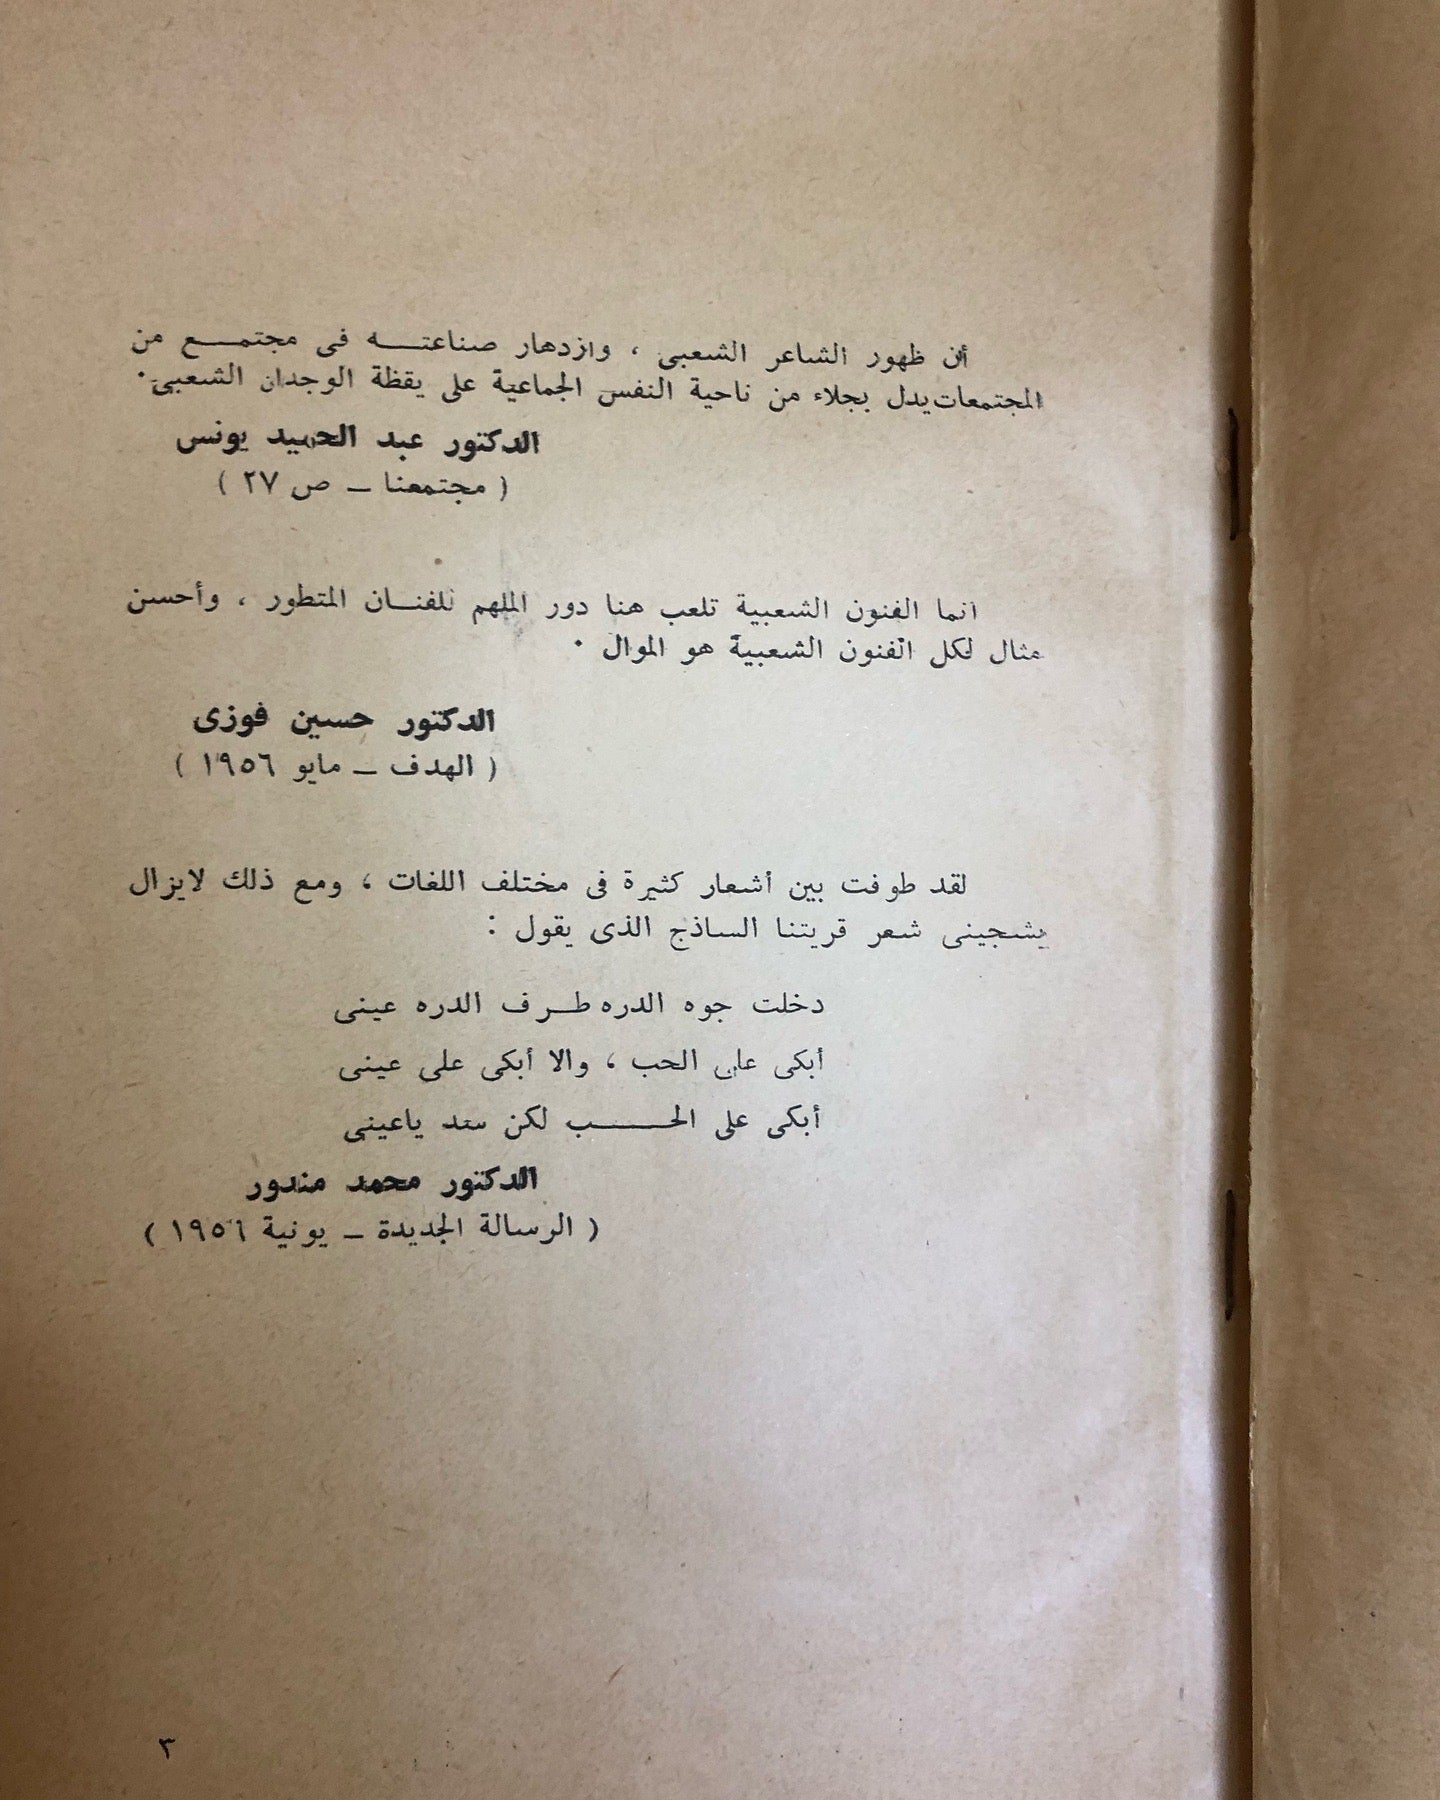 أن ظهور الشاعر الشعبى ، وازدهار صناعته فى مجتمع من
المجتمعات يدل بجلاء من ناحية النفس الجماعية على يقظة الوجدان الشعبى .
الدكتور عبد الحميد يونس
( مجتمعنا – ص ٢٧ )
انما الفنون الشعبية تلعب هنا دور الملهم للفنان المتطور ، وأحسن
مثال لكل الفنون الشعبية هو الموال .
الدكتور حسين فوزى
( الهدف – مايو ١٩٥٦ )
لقد طوفت بين أشعار كثيرة فى مختلف اللغات ، ومع ذلك لايزال
يشجينى شعر قريتنا الساذج الذى يقول :
دخلت جوه الدره طرف الدره عينى
أبكى على الحب ، والا أبكى على عينى
أبكى على الحب لكن سند ياعينى
الدكتور محمد مندور
( الرسالة الجديدة – يونية ١٩٥٦ )
٣